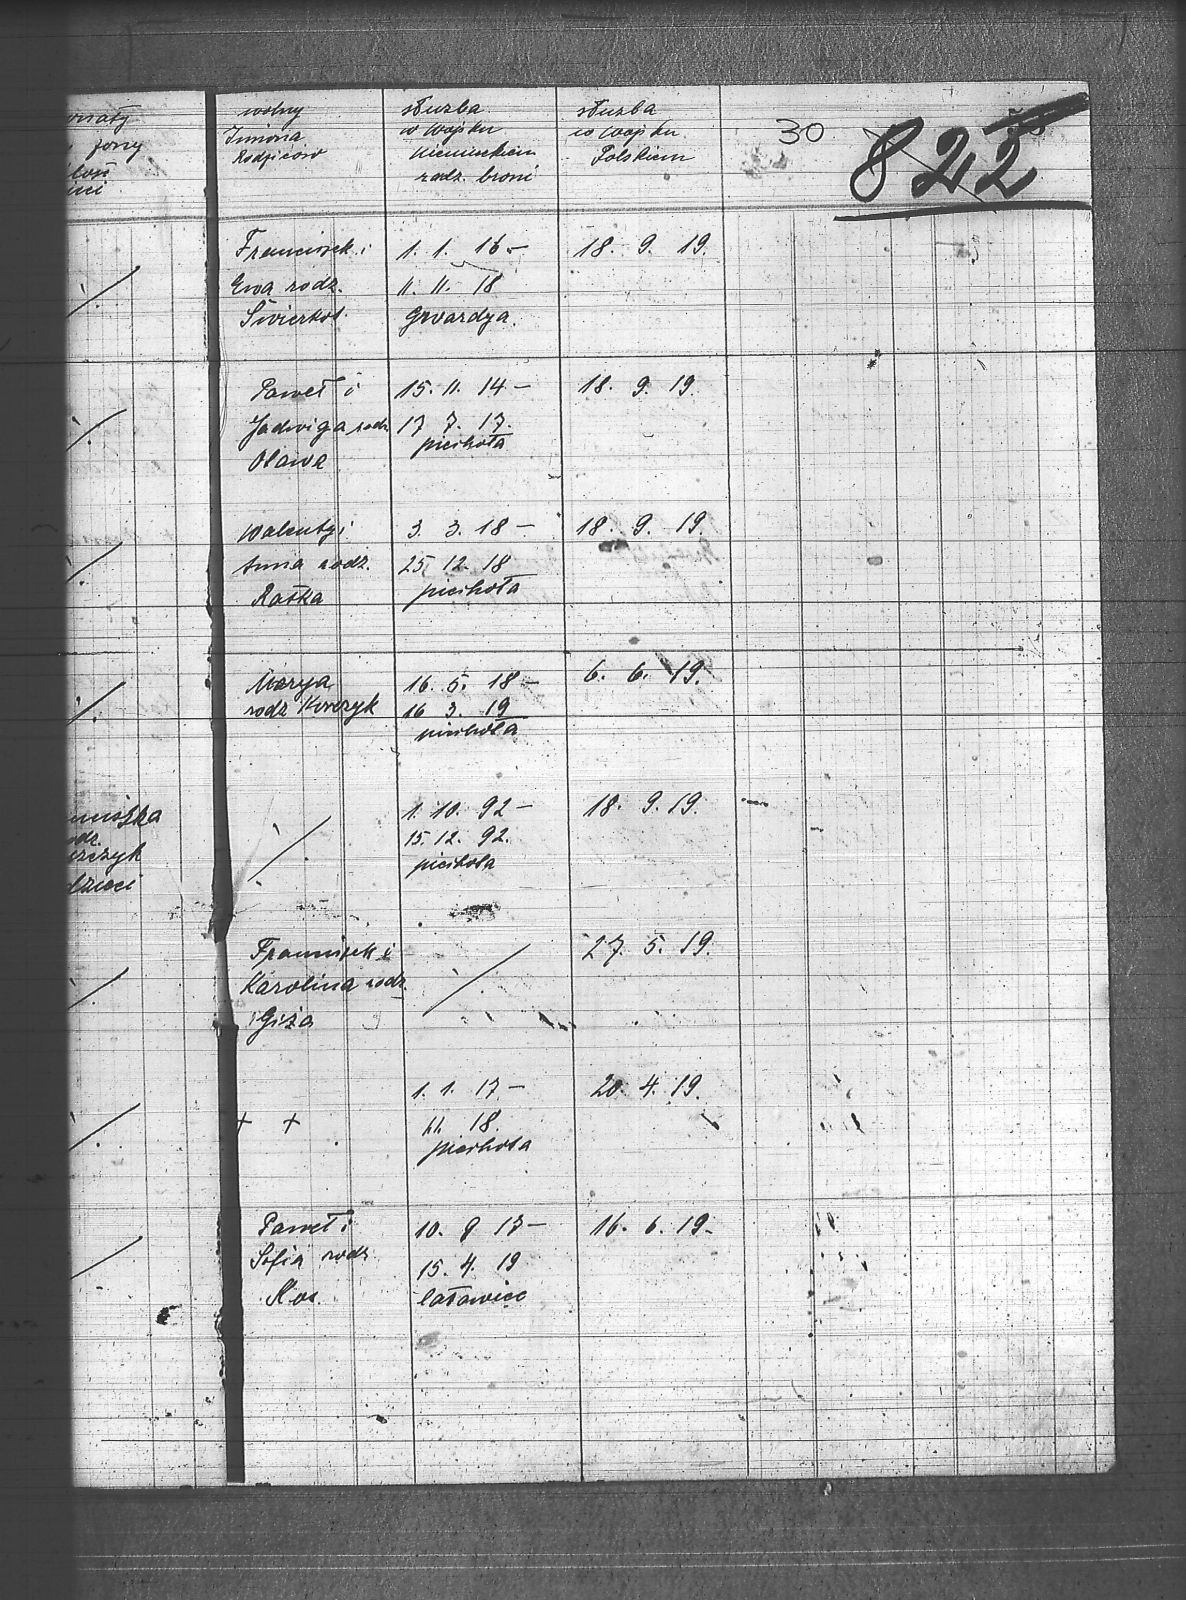 wolny
Imiona
Rodziców
służba
w wojsku
niemieckiem
rodz. broni
służba
w wojsku
Polskiem
30
822
żony
Franciszek i
Ewa rodz.
Świerkot
1. 1. 16 –
11. 11. 18
Gwardya.
18. 9. 19.
Paweł i
Jadwiga rodz.
Oława
15. 11. 14 –
17 7. 17.
piechota
18. 9. 19.
Walenty i
Anna rodz.
Raszka
3. 3. 18 –
25. 12. 18
piechota
18. 9. 19.
Marya
rodz
16. 5. 18 –
16 3. 19
piechota
6. 6. 19.
1. 10. 92 –
15. 12. 92.
piechota
18. 9. 19.
dzieci
Franciszek i
Karolina rodz.
Giża
27. 5. 19.
+ +
1. 1. 17 –
11. 18.
piechota
20. 4. 19.
Paweł i
Sofia rodz
Kos.
10. 9 17 –
15. 4. 19
latawiec
16. 6. 19.